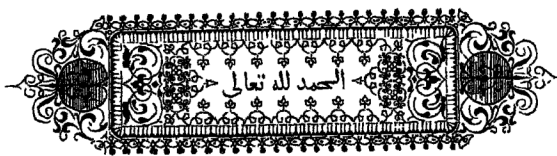 الحمد لله تعالى